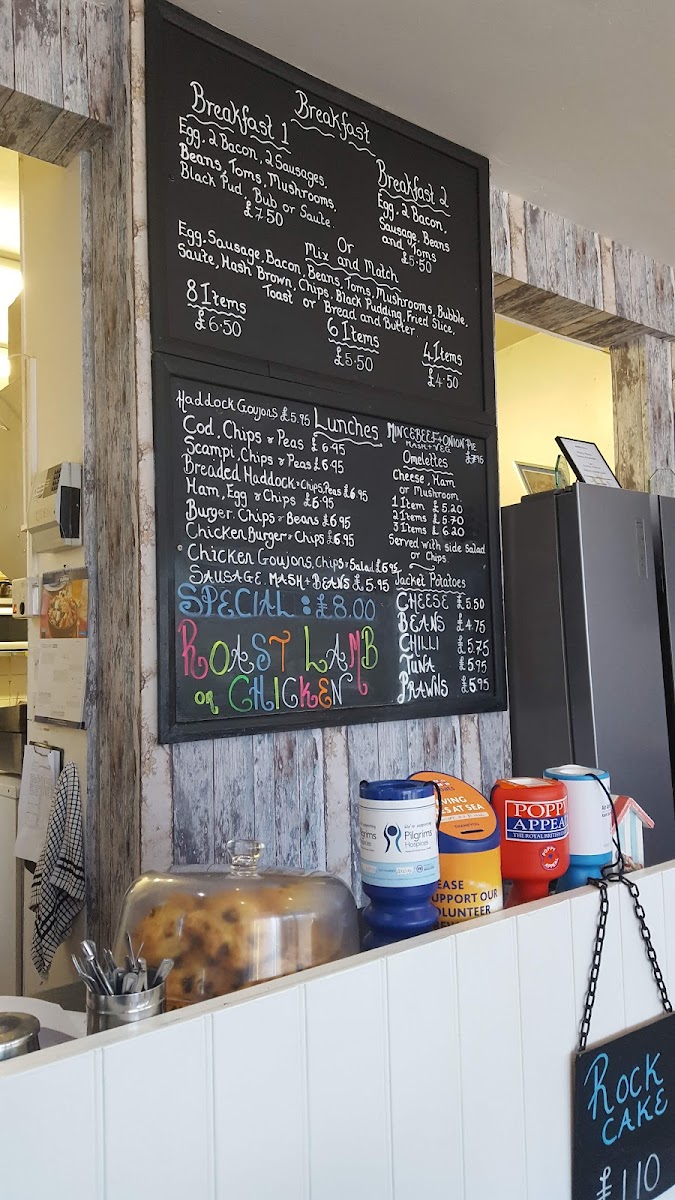 Breakfast
Breakfast 1
Egg, 2 Bacon, 2 Sausages,
Beans, Toms, Mushrooms,
Black Pud, Bub or Saute.
£7.50
Breakfast 2
Egg, 2 Bacon,
Sausage, Beans
and Toms
£5.50
Or
Mix and Match
Egg, Sausage, Bacon, Beans, Toms, Mushrooms, Bubble,
Saute, Hash Brown, Chips, Black Pudding, Fried Slice,
Toast or Bread and Butter.
8 Items
£6.50
6 Items
£5.50
4 Items
£4.50
Lunches
Haddock Goujons £5.95
Cod, Chips & Peas £6.95
Scampi, Chips & Peas £6.95
Breaded Haddock & Chips, Peas £6.95
Ham, Egg & Chips £6.95
Burger, Chips & Beans £6.95
Chicken Burger & Chips £6.95
Chicken Goujons, Chips & Salad £6.95
SAUSAGE, MASH + BEANS £5.95
SPECIAL : £8.00
ROAST LAMB
OR CHICKEN
MINCEBEEF + ONION PIE
MASH + VEG
Omelettes
Cheese, Ham
or Mushroom
1 Item £5.20
2 Items £5.70
3 Items £6.20
Served with side Salad
or Chips.
Jacket Potatoes
CHEESE £5.50
BEANS £4.75
CHILLI £5.75
TUNA £5.95
PRAWNS £5.95
Pilgrims
Hospices
AT SEA
SUPPORT OUR
VOLUNTEER
POPPY
APPEAL
ROCK
CAKE
£1.10